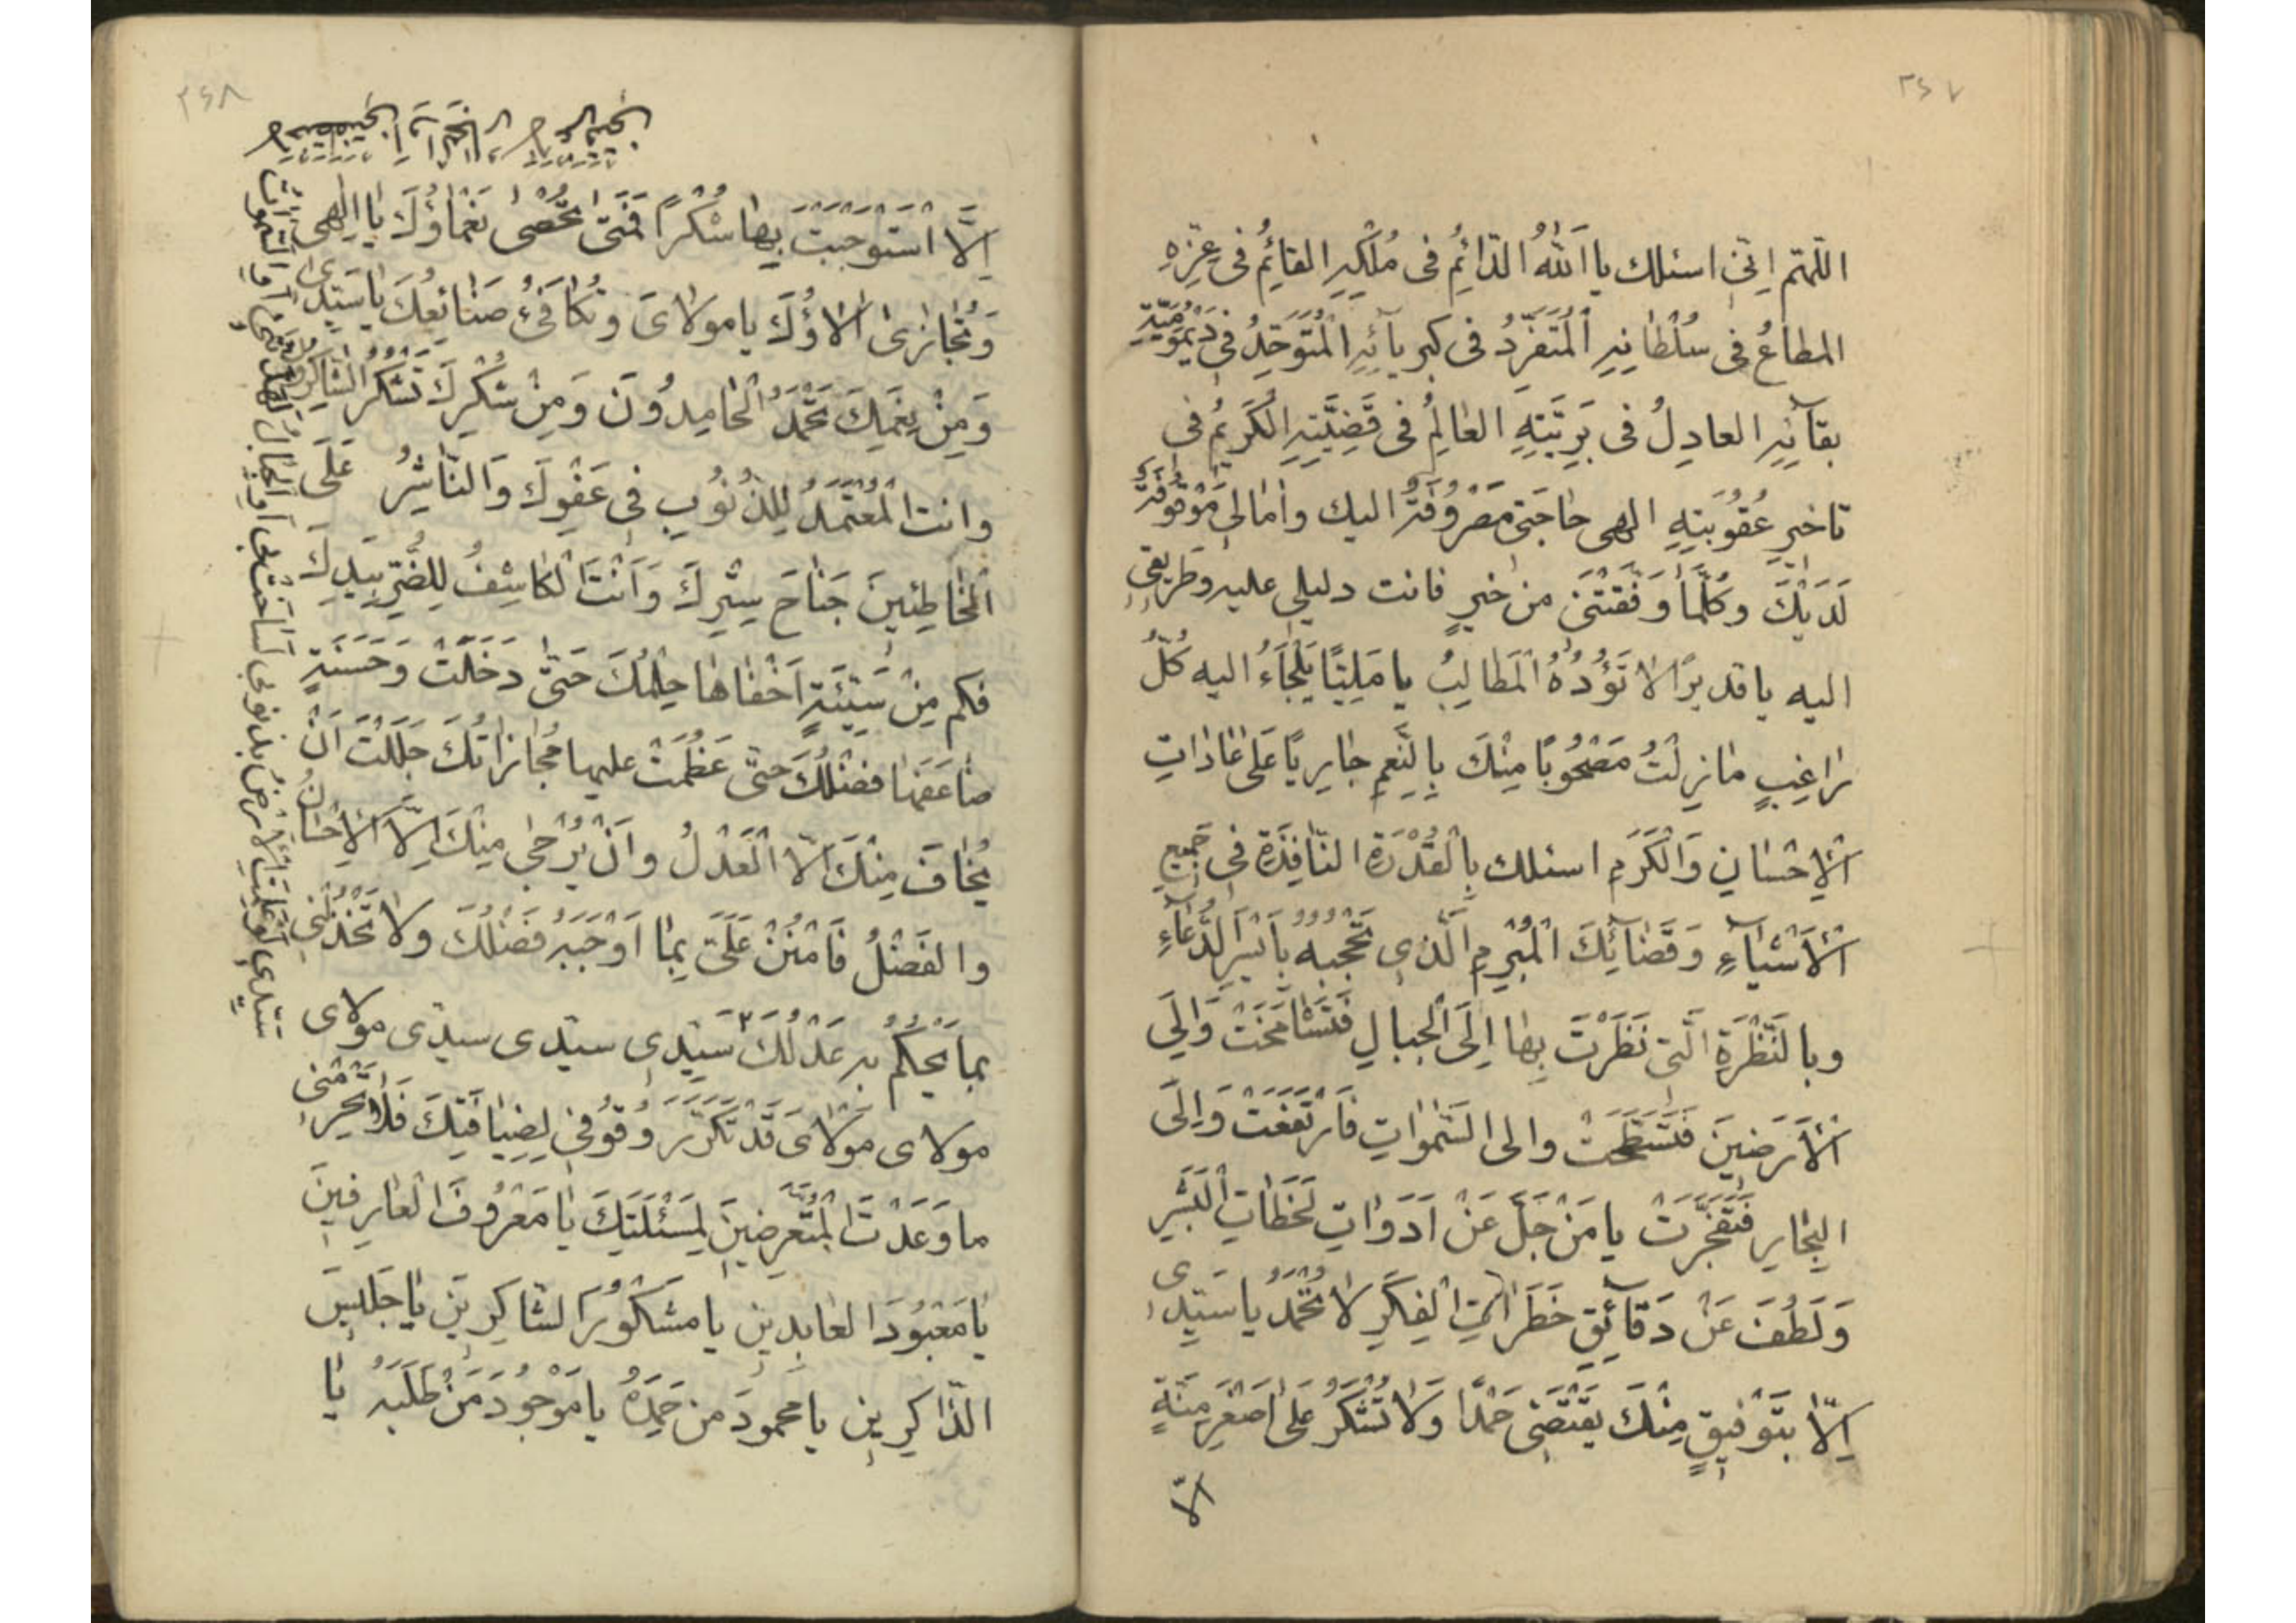 ٣٤٧
اللهم انی اسئلك یا اَللهُ الدّائِمُ فی مُلْكِهِ القائِمُ فی عِزِّهِ
المطاعُ فی سُلْطانِهِ اَلْمُتَفَرِّدُ فی كبریآئِهِ اَلْمُتَوَحِّدُ فی دَیْمُومِیَّةِ
بقآئِهِ العادِلُ فی بَرِیَّتِهِ العالِمُ فی قَضِیَّتِهِ الكَریُم فی
تاخیرِ عُقُوبَتِهِ الهی حاجَتی مَصْرُوفَةٌ الیك وامالی مَوْقُوفَةٌ
لَدَیْكَ وكُلَّما وَفَّقْتَنی من خیرٍ فانت دلیلی علیه وطَریقی
الیه یا قدیرًا لا تَؤُدُهُ اَلْمَطالِبُ یا مَلِیًّا یَلْجَاءُ الیه كُلُّ
راغِبٍ مازِلْتُ مَصْحُوبًا مِنْكَ بِالنِّعَمِ جارِیًا عَلی عاداتِ
اَلْاِحْسانِ وَالْكَرَمِ اسئلك بِالْقُدْرَةِ النّافِذَةِ فی جَمیعِ
اَلْاَشْیآءِ وَقَضآئِكَ الْمُبْرَمِ الَّذی تَحْجُبُهُ بِاَیْسَرِ الدُّعآءِ
وبالنَّظْرَةِ الَّتی نَظَرْتَ بِها اِلَی الْجبالِ فَتَشامَخَتْ وَاِلَی
اَلْاَرَضینَ فَتَسَطَّحَتْ والی السَّمواتِ فَارْتَفَعَتْ وَاِلَی
البِحارِ فَتَفَجَّرَتْ یا مَنْ جَلَّ عَنْ اَدَواتِ لَحَظاتِ الْبَشَرِ
وَلَطُفَ عَنْ دَقآئِقِ خَطَراتِ الْفِكَرِ لا تُحْمَدُ یا سَیِّدی
اِلّا بِتَوْفیقٍ مِنْكَ یَقْتَضی حَمْدًا وَلا تُشْكَرُ عَلی اَصْغَرِ مِنَّةٍ
الّا
٣٤٨
اِلَّا اسْتَوْجَبْتَ بِها شُكْرًا فَمَتی تُحْصی نَعْماؤُكَ یا اِلهی
وَتُجازی الاؤُكَ یا مولایَ وتُكافَئُ صَنائِعُكَ یا سَیِّدی
وَمِنْ نِعَمِكَ تَحْمَدُ الْحامِدُونَ وَمِنْ شُكْرِكَ تَشْكُرُ الشّاكِرُونَ
وانت الْمُعْتَمَدُ لِلذُّنُوبِ فی عَفْوِكَ وَالنّاشِرُ عَلَی
اَلْخاطِئینَ جَناحَ سِتْرِكَ وَاَنْتَ الْكاشِفُ لِلضُّرِّ بِیَدِكَ
فكم مِنْ سَیِّئَةٍ اَخْفاها حِلْمُكَ حَتّی دَخِلَتْ وَحَسَنَةٍ
ضاعَفَها فضلُكَ حتّی عَظُمَتْ علیها مُجازاتُكَ جَلَلْتَ اَنْ
یُخافَ مِنْكَ اِلّا الْعَدْلُ واَنْ یُرْجی مِنْكَ اِلّا الْاِحْسانُ
والفَضْلُ فَامْنُنْ عَلَیَّ بِما اَوْجَبَهُ فَضْلُكَ ولا تَخْذُلْنی
بما یَحْكُمُ به عَدْلُكَ سَیِّدی سیّدی سیدی مولای
مولای مَوْلایَ قَدْ تَكَرَّرَ وُقُوفی لِضِیافَتِكَ فَلا تَحْرِمْنی
ما وَعَدْتَ الْمُتَعَرِّضینَ لِمَسْئَلَتِكَ یا مَعْرُوفَ الْعارِفینَ
یا مَعْبُودَ العابِدین یا مَشْكُورَ الشّاكِرینَ یا جَلیسَ
الذّاكِرینِ یا محمودَ من حَمِدَهُ یا مَوْجُودَ مَنْ طَلَبَه یا